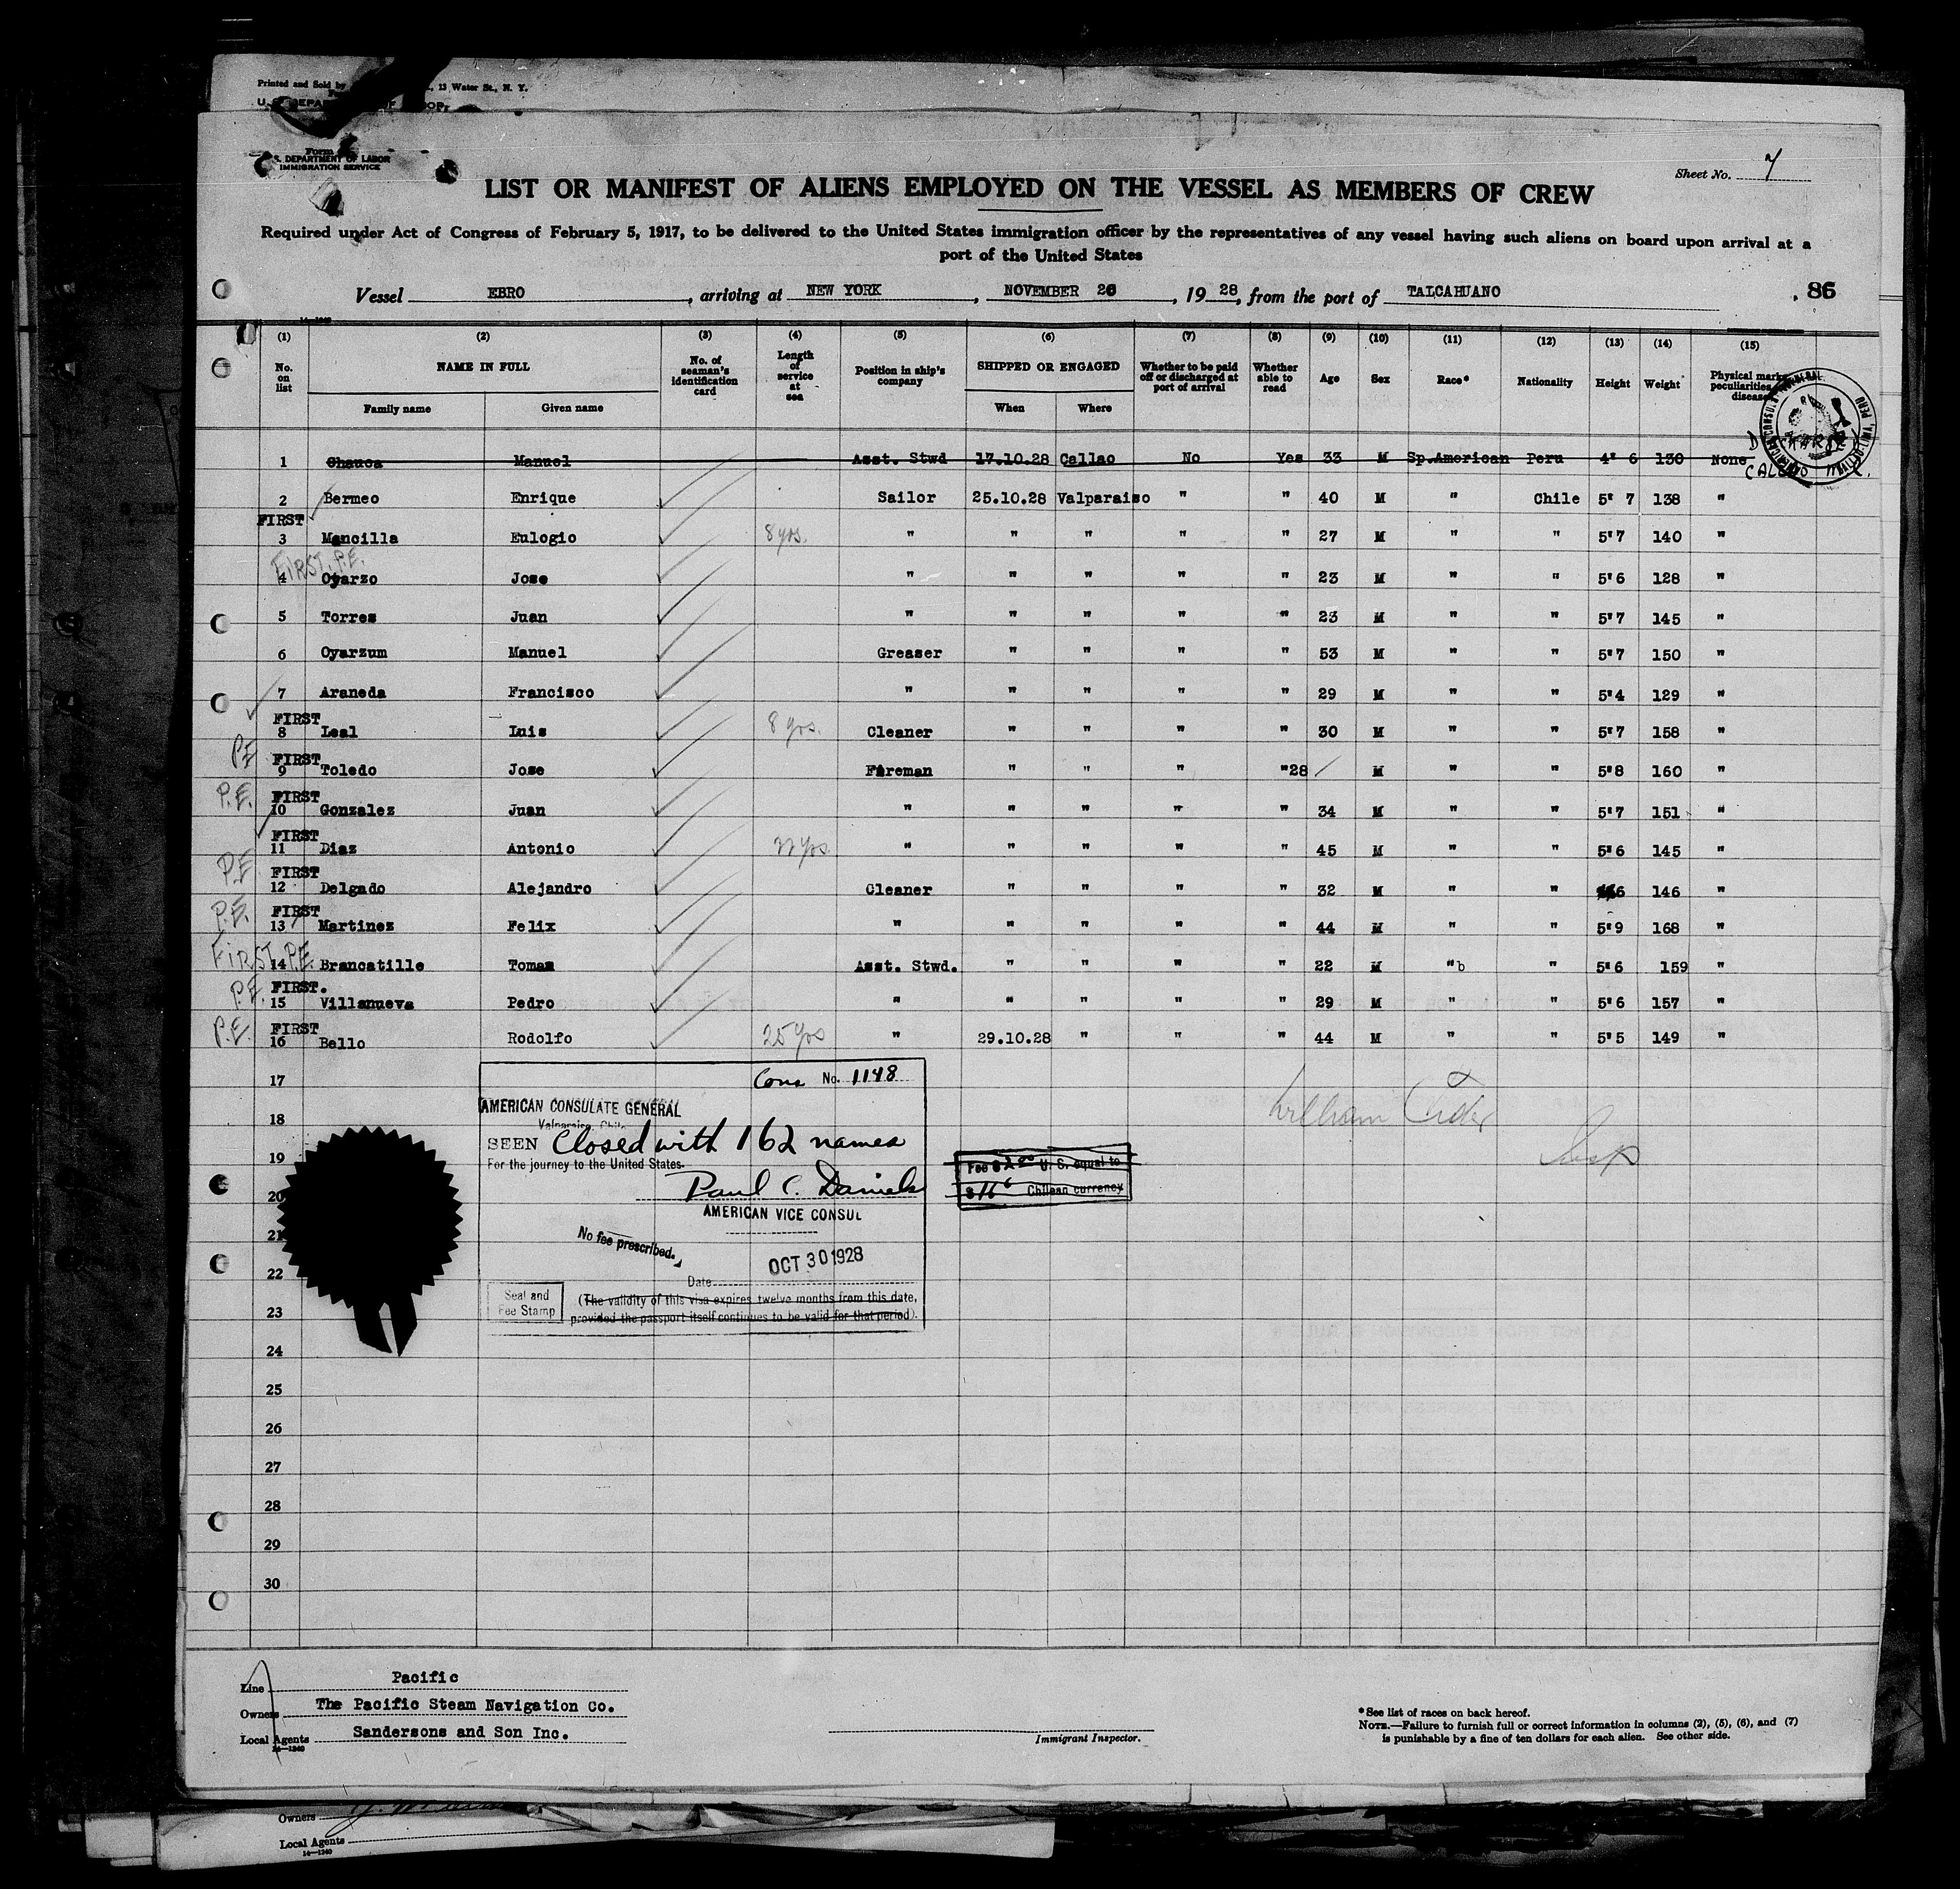 Printed and Sold by , 13 Water St., N. Y.
Form
S. DEPARTMENT OF LABOR
IMMIGRATION SERVICE
Sheet No. 7
LIST OR MANIFEST OF ALIENS EMPLOYED ON THE VESSEL AS MEMBERS OF CREW
Required under Act of Congress of February 5, 1917, to be delivered to the United States immigration officer by the representatives of any vessel having such aliens on board upon arrival at a
port of the United States
Vessel EBRO, arriving at NEW YORK, NOVEMBER 26, 1928, from the port of TALCAHUANO. 86
(1) (2) (3) (4) (5) (6) (7) (8) (9) (10) (11) (12) (13) (14) (15)
No. on list NAME IN FULL No. of seaman's identification card Length of service at sea Position in ship's company SHIPPED OR ENGAGED Whether to be paid off or discharged at port of arrival Whether able to read Age Sex Race* Nationality Height Weight Physical marks, peculiarities disease
Family name Given name When Where
1 Chauca Manuel Asst. Stwd 17.10.28 Callao No Yes 33 M Sp.American Peru 4" 6 130 None
CALLAO
2 Bermeo Enrique Sailor 25.10.28 Valparaiso " " 40 M " Chile 5" 7 138 "
FIRST
3 Mancilla Eulogio 8 yrs. " " " " " 27 M " " 5"7 140 "
FIRST. P.E.
4 Oyarzo Jose " " " " " 23 M " " 5"6 128 "
5 Torres Juan " " " " " 23 M " " 5"7 145 "
6 Oyarzum Manuel Greaser " " " " 53 M " " 5"7 150 "
7 Araneda Francisco " " " " " 29 M " " 5"4 129 "
FIRST
8 Leal Luis 8 yrs. Cleaner " " " " 30 M " " 5"7 158 "
PE FIRST
9 Toledo Jose Fireman " " " "28 M " " 5"8 160 "
P.E. FIRST
10 Gonzalez Juan " " " " " 34 M " " 5"7 151 "
FIRST
11 Diaz Antonio 27 yrs " " " " " 45 M " " 5"6 145 "
P.E FIRST
12 Delgado Alejandro Cleaner " " " " 32 M " " 6 146 "
P.E. FIRST
13 Martinez Felix " " " " " 44 M " " 5"9 168 "
FIRST P.E.
14 Brancatille Tomas Asst. Stwd. " " " " 22 M "b " 5"6 159 "
P.E. FIRST.
15 Villanueva Pedro " " " " " 29 M " " 5"6 157 "
P.E. FIRST
16 Bello Rodolfo 25 yrs " 29.10.28 " " " 44 M " " 5"5 149 "
17
18
19
20
21
22
23
24
25
26
27
28
29
30
Cons No. 1148
AMERICAN CONSULATE GENERAL
Valparaiso, Chile
SEEN Closed with 162 names
For the journey to the United States.
Paul C. Daniels
AMERICAN VICE CONSUL
No fee prescribed.
Date OCT 30 1928
Seal and
Fee Stamp
(The validity of this visa expires twelve months from this date,
provided the passport itself continues to be valid for that period).
Fee $2.00 U. S. equal to
Chilean currency
William
Insp
Line Pacific
Owners The Pacific Steam Navigation Co.
Local Agents Sandersons and Son Inc.
14—1240
Immigrant Inspector.
*See list of races on back hereof.
NOTE.—Failure to furnish full or correct information in columns (2), (5), (6), and (7)
is punishable by a fine of ten dollars for each alien. See other side.
Owners
Local Agents
14—1240